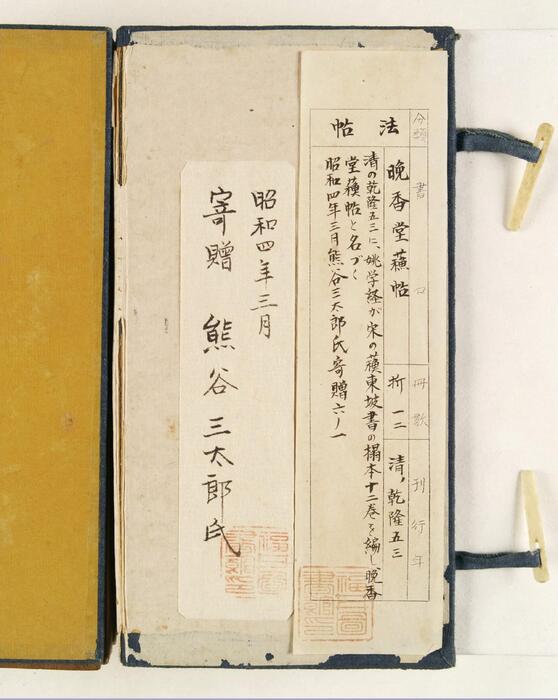 分類 書名 冊数 刊行年
法帖
晩香堂蘓帖 折一二 清、乾隆五三
清の乾隆五三に、姚学経が宋の蘓東坡書の搨本十二巻を編し晩香
堂蘓帖と名づく
昭和四年三月熊谷三太郎氏寄贈六ノ一
昭和四年三月
寄贈 熊谷三太郎氏